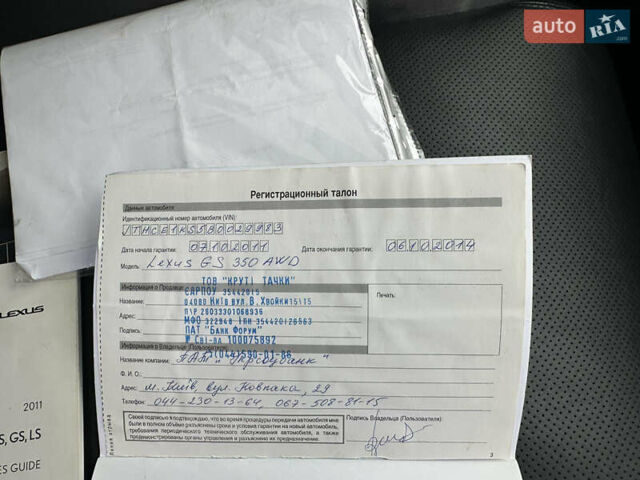 auto RIA .com
Регистрационный талон
Данные автомобиля
Идентификационный номер автомобиля (VIN):
JTHCE1KS5B0029983
Дата начала гарантии: 07.10.2011 Дата окончания гарантии: 06.10.2014
Модель: Lexus GS 350 AWD
ТОВ "КРУТІ ТАЧКИ"
Информация о Продавце
САРПОУ 35442015
Печать:
Название: 04080 Київ вул. В. Хвойки 15/15
П/Р 26033301068936
Адрес: МФО 322948 ІПН 354420126563
ПАТ "Банк Форум"
Подпись: № Сві-ва 100075892
Информация о Владельце (Пользователе)
(044)590-01-86
Название компании: ПАТ "Укрсоцбанк"
Ф. И. О.:
Адрес: м. Київ, вул. Ковпака, 29
Телефон: 044-230-13-64, 067-508-81-15
Своей подписью я подтверждаю, что во время процедуры передачи автомобиля мне
были в полном объёме разъяснены сроки и условия гарантии на новый автомобиль,
требования периодического технического обслуживания автомобиля, а также
продемонстрированы органы управления и разъяснено их предназначение.
Подпись Владельца (Пользователя):
Линия отрыва
3
LEXUS
2011
S, GS, LS
ES GUIDE